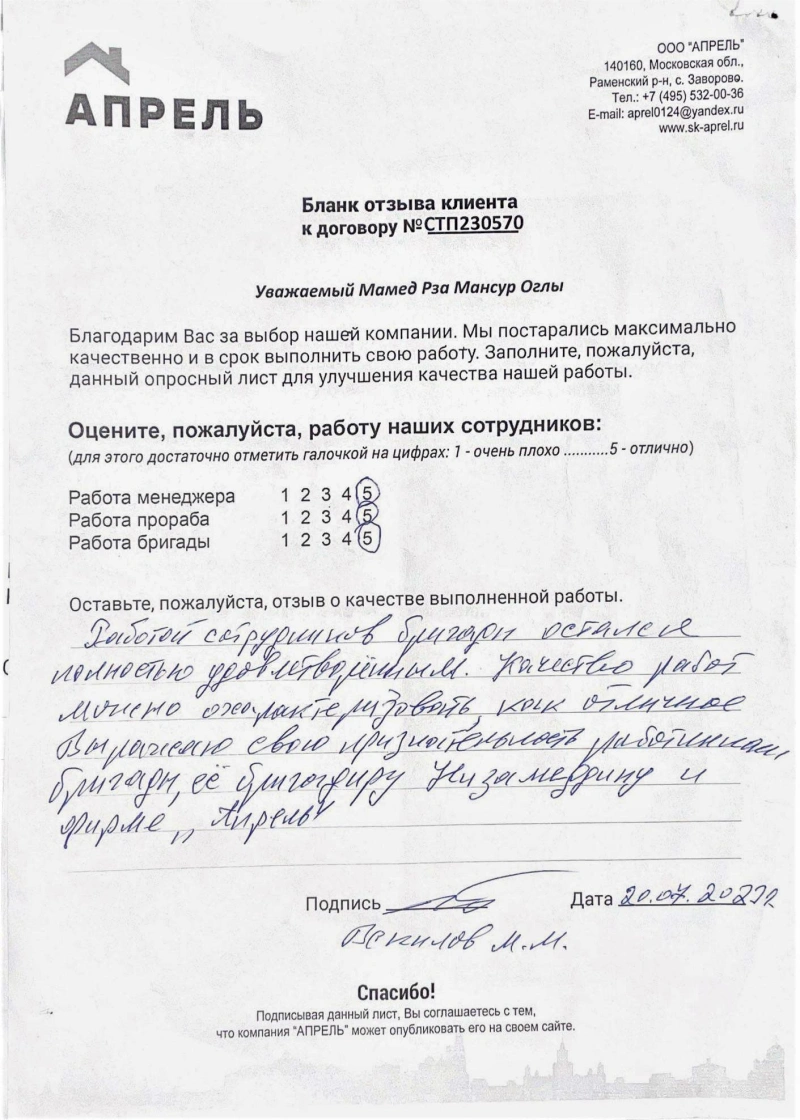 АПРЕЛЬ
ООО "АПРЕЛЬ"
140160, Московская обл.,
Раменский р-н, с. Заворово.
Тел.: +7 (495) 532-00-36
E-mail: aprel0124@yandex.ru
www.sk-aprel.ru
Бланк отзыва клиента
к договору №СТП230570
Уважаемый Мамед Рза Мансур Оглы
Благодарим Вас за выбор нашей компании. Мы постарались максимально
качественно и в срок выполнить свою работу. Заполните, пожалуйста,
данный опросный лист для улучшения качества нашей работы.
Оцените, пожалуйста, работу наших сотрудников:
(для этого достаточно отметить галочкой на цифрах: 1 - очень плохо ...........5 - отлично)
Работа менеджера 1 2 3 4 5
Работа прораба 1 2 3 4 5
Работа бригады 1 2 3 4 5
Оставьте, пожалуйста, отзыв о качестве выполненной работы.
Работой сотрудников бригады остался
полностью удовлетворённым. Качество работ
можно охарактеризовать, как отличное
Выражаю свою признательность работникам
бригады, её бригадиру Низамеддину и
фирме „Апрель"
Подпись Дата 20.07.2023г
Векилов М.М.
Спасибо!
Подписывая данный лист, Вы соглашаетесь с тем,
что компания "АПРЕЛЬ" может опубликовать его на своем сайте.